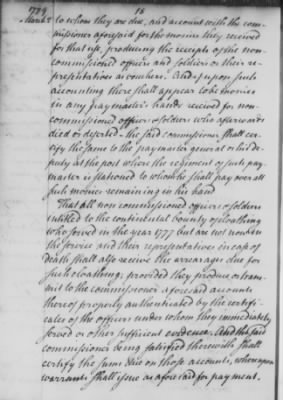 1779 18
March 2 to whom they are due, and account with the com-
missioner aforesaid for the monies they received
for that use, producing the receipts of the non-
commissioned officers and soldiers or their re-
presentatives as vouchers. And if upon such
accounting there shall appear to be monies
in any paymaster's hands received for non-
commissioned officers & soldiers who afterwards
died or deserted - the said commissioner shall cer-
tify the same to the paymaster general or his de-
puty at the post where the regiment of such pay-
master is stationed to whom he shall pay over all
such monies remaining in his hand
That all non commissioned officers & soldiers
intitled to the continental bounty of cloathing
who served in the year 1777 but are not now in
the service and their representatives in case of
death shall also receive the arrearages due for
such cloathing; provided they produce or trans-
mit to the commissioner aforesaid accounts
thereof properly authenticated by the certifi-
cates of the officers under whom they immediately
served or other sufficient evidence. And the said
commissioner being satisfied therewith shall
certify the sums due on those accounts, whereupon
warrants shall issue as aforesaid for payment.